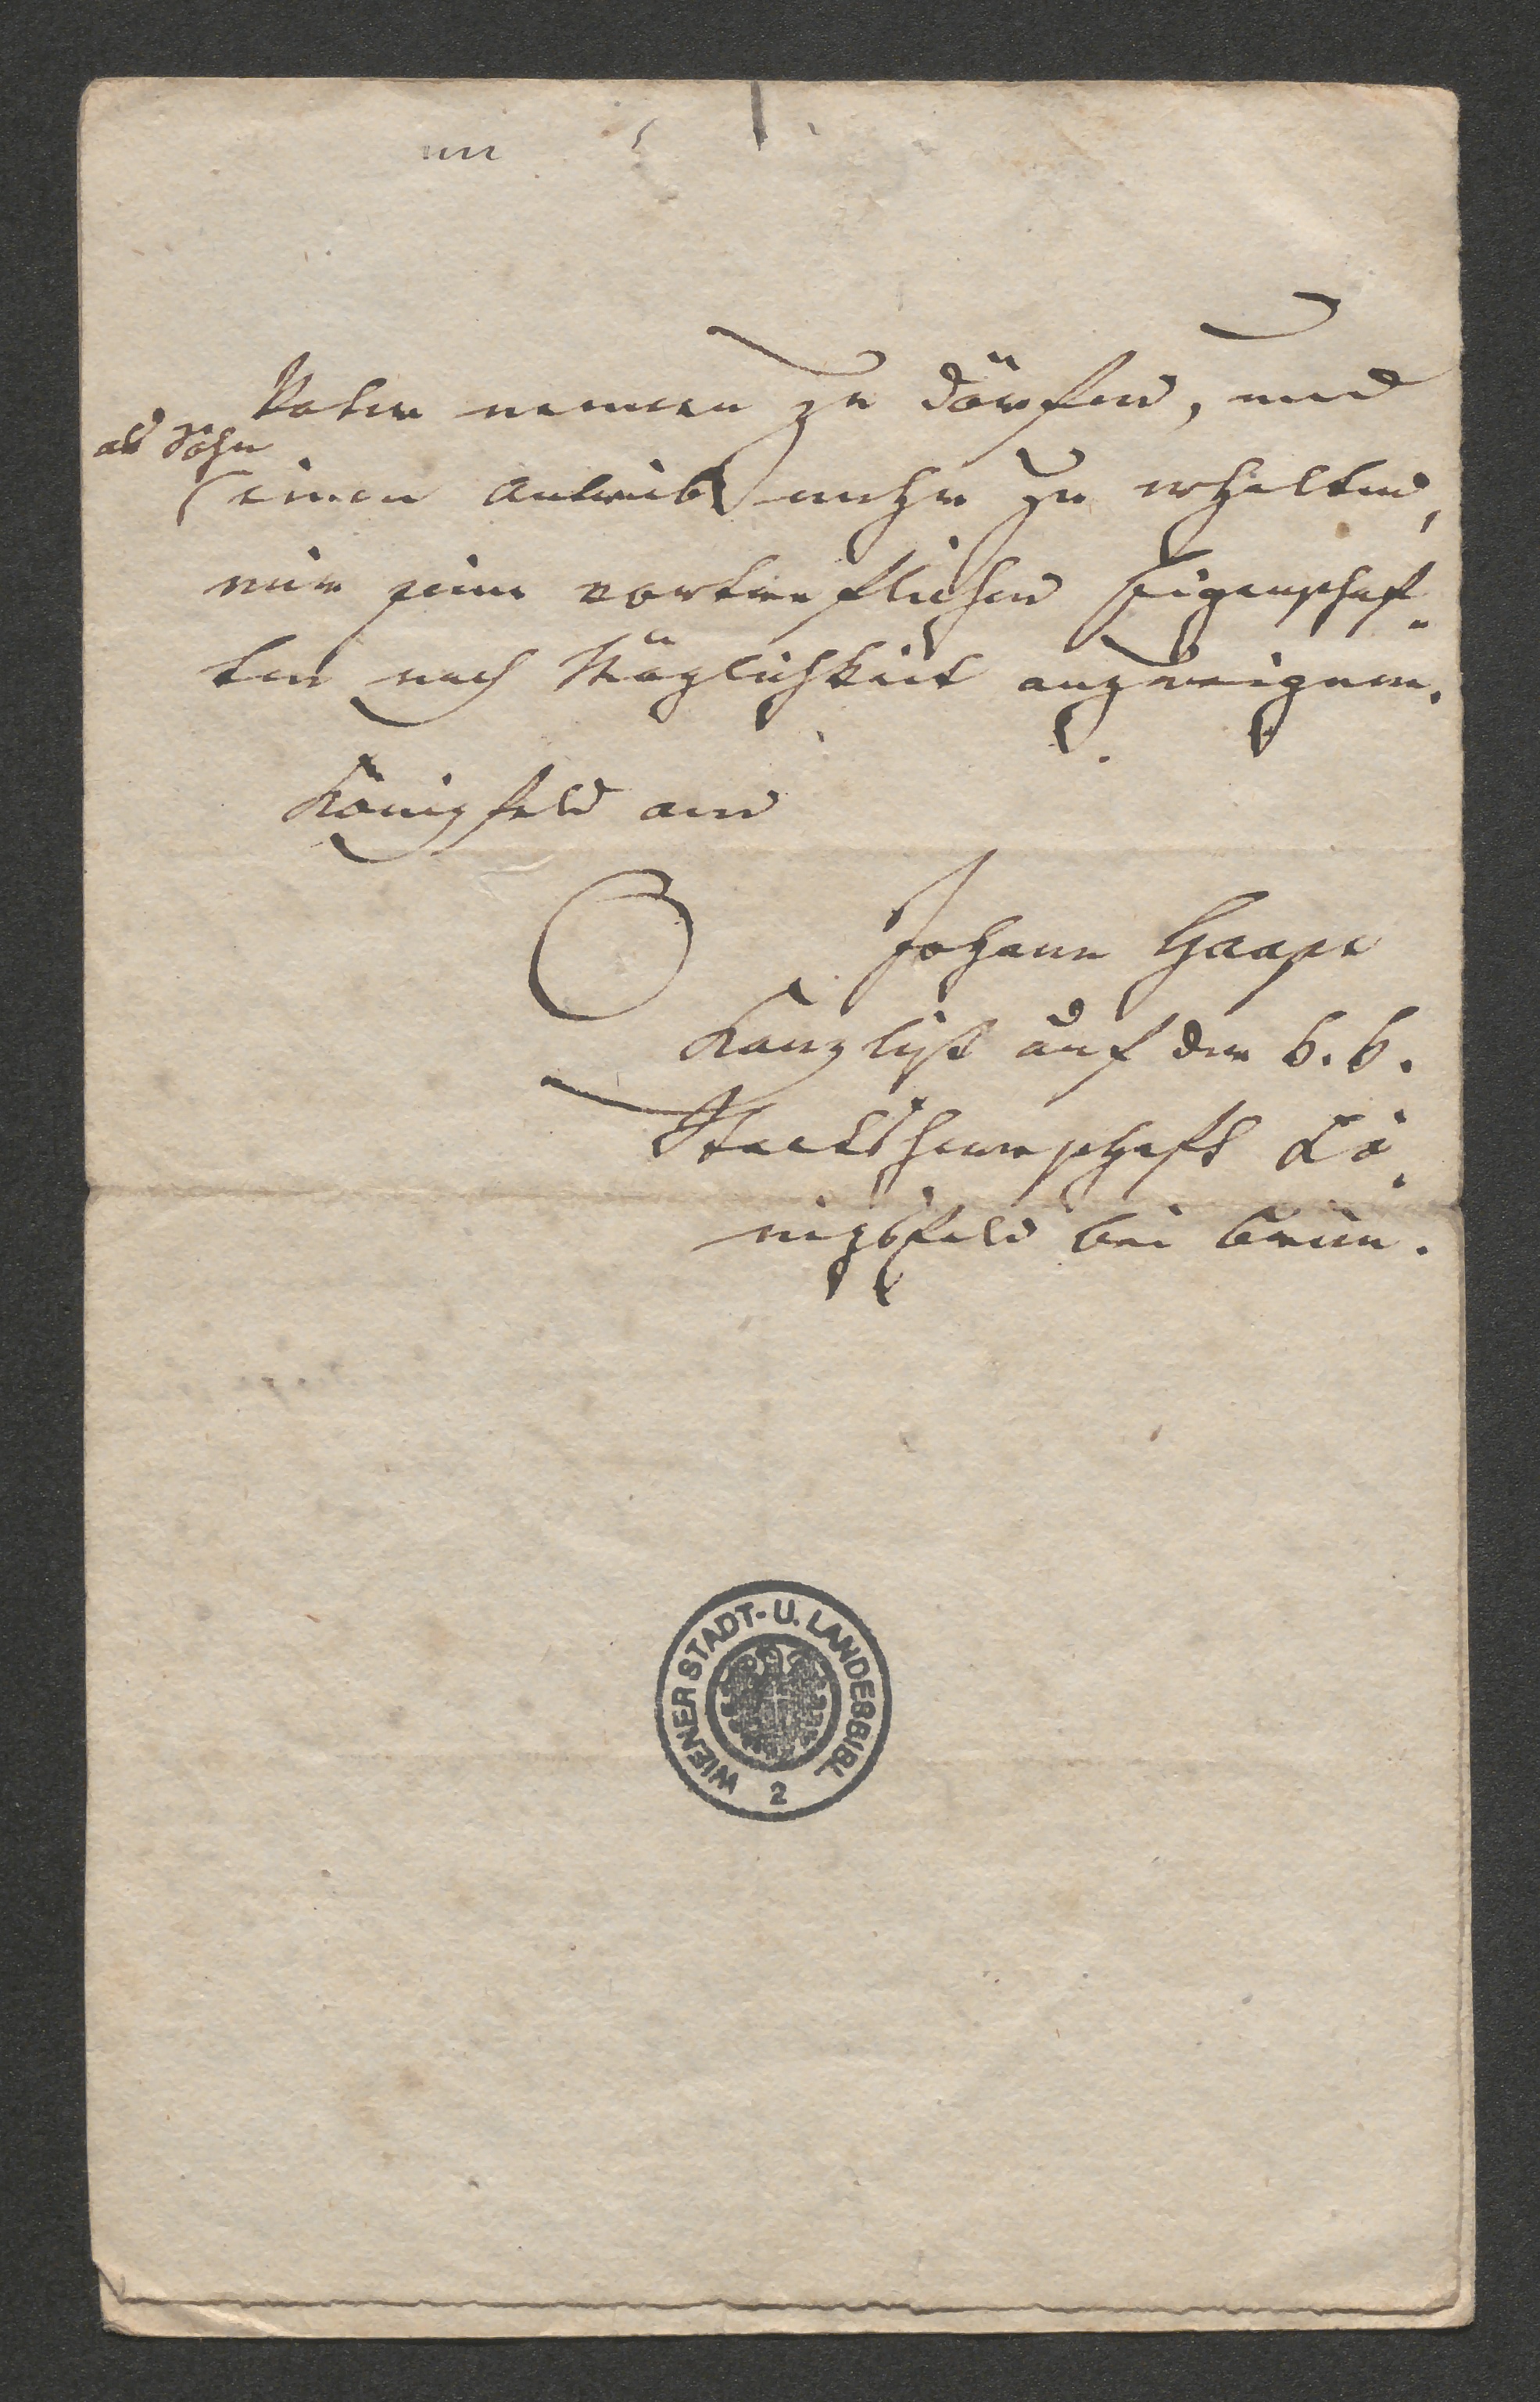 Vater nennen zu dörfen, und
als Sohn
einen Antrieb mehr zu erhalten,
mir seine vortrefflichen Eigenschaf-
ten nach Möglichkeit anzueignen.
Königfeld am
Johann Haase
Kanzlist auf der k. k.
Staatsherrschaft Kö-
nigsfeld bei Brünn.
WIENER STADT- U. LANDESBIBL
2